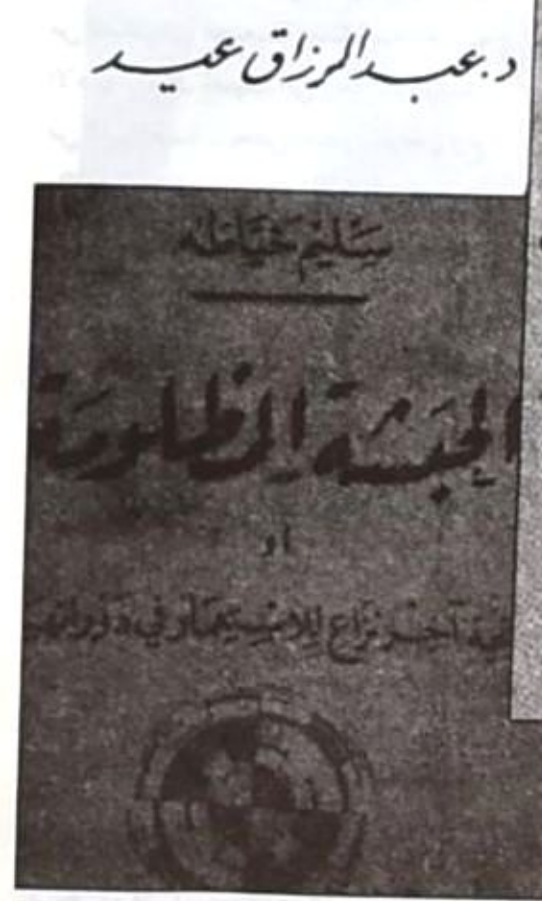 د. عبد الرزاق عيد
سليم خياطه
الحبشة المظلومة
او
آخر نزاع للاستعمار في دور